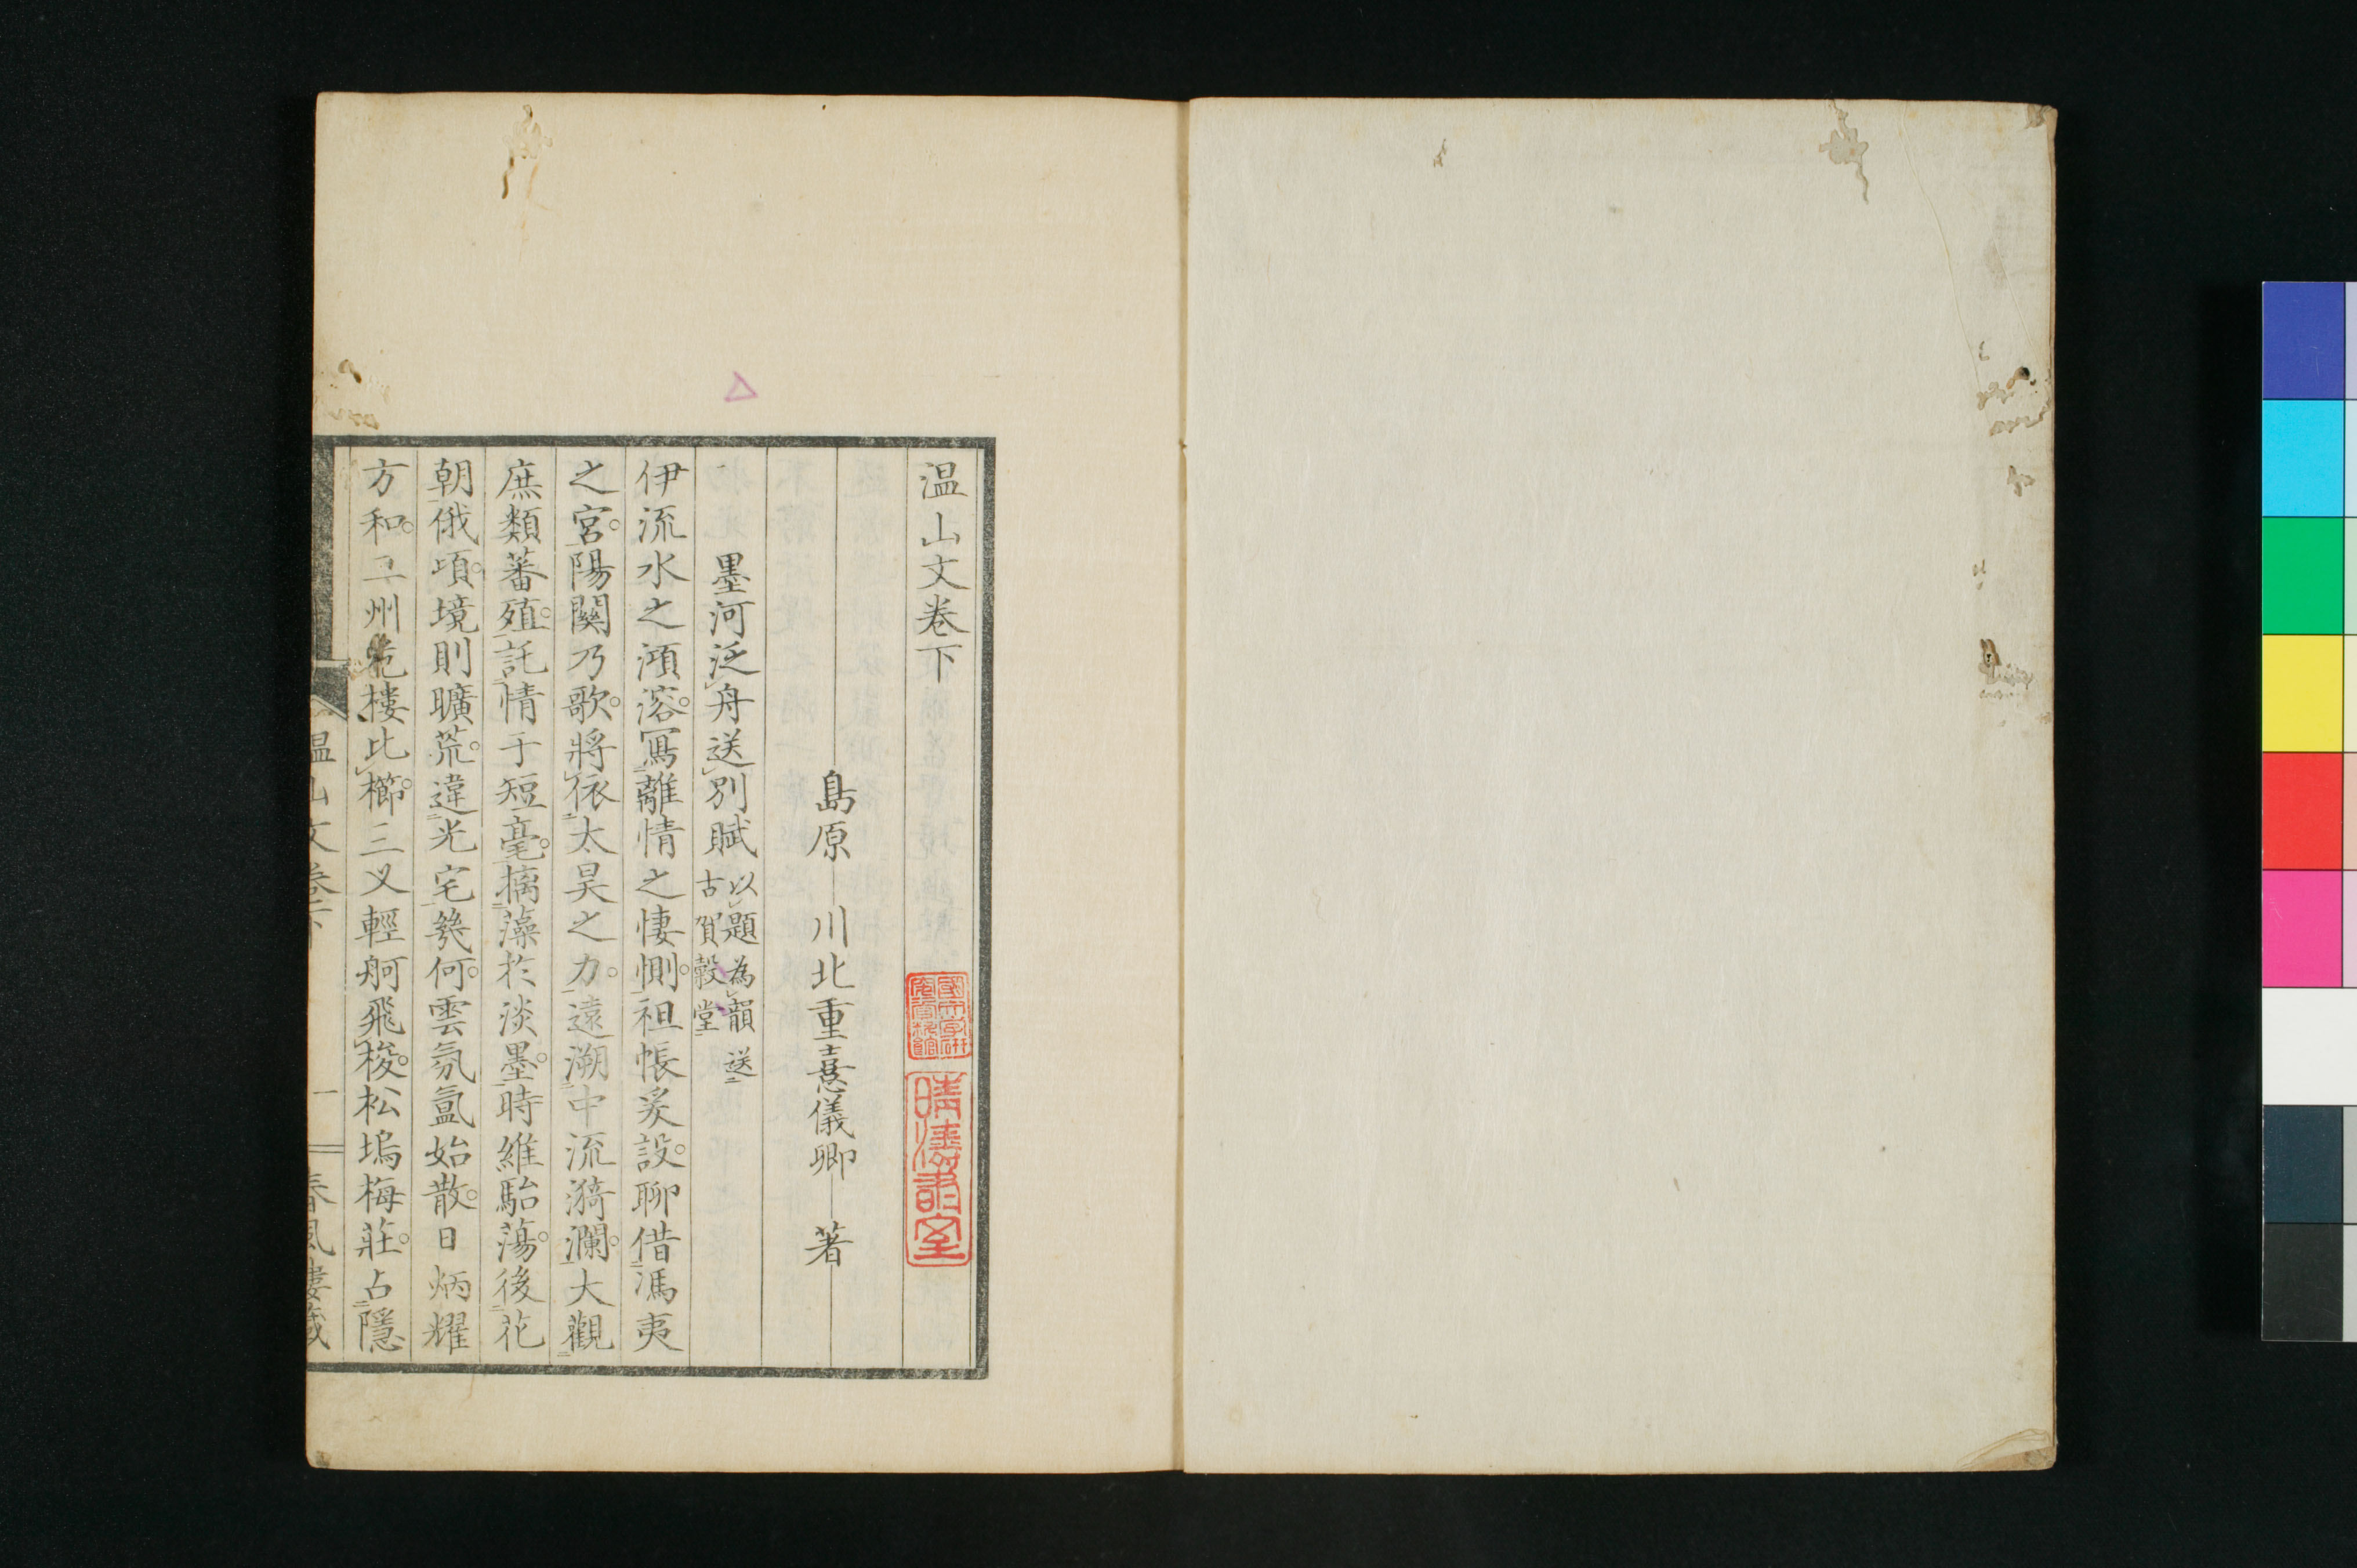 温山文卷下
島原 川北重憙儀卿 著
墨河泛舟送別賦 以題為韻 送古賀穀堂
伊流水之澒溶。寫離情之悽惻。祖帳爰設。聊借馮夷
之宮。陽關乃歌。將依太昊之力。遠溯中流漪瀾。大觀
庶類蕃殖。託情于短毫。摛藻於淡墨。時維駘蕩。後花
朝俄項。境則曠荒。違光宅幾何。雲氛氳始散。日炳耀
方和。二州危樓比櫛。三叉輕舸飛梭。松塢梅莊。占隱
温山文卷下 一 春風樓藏
國文學研究資料館
晴濤書室